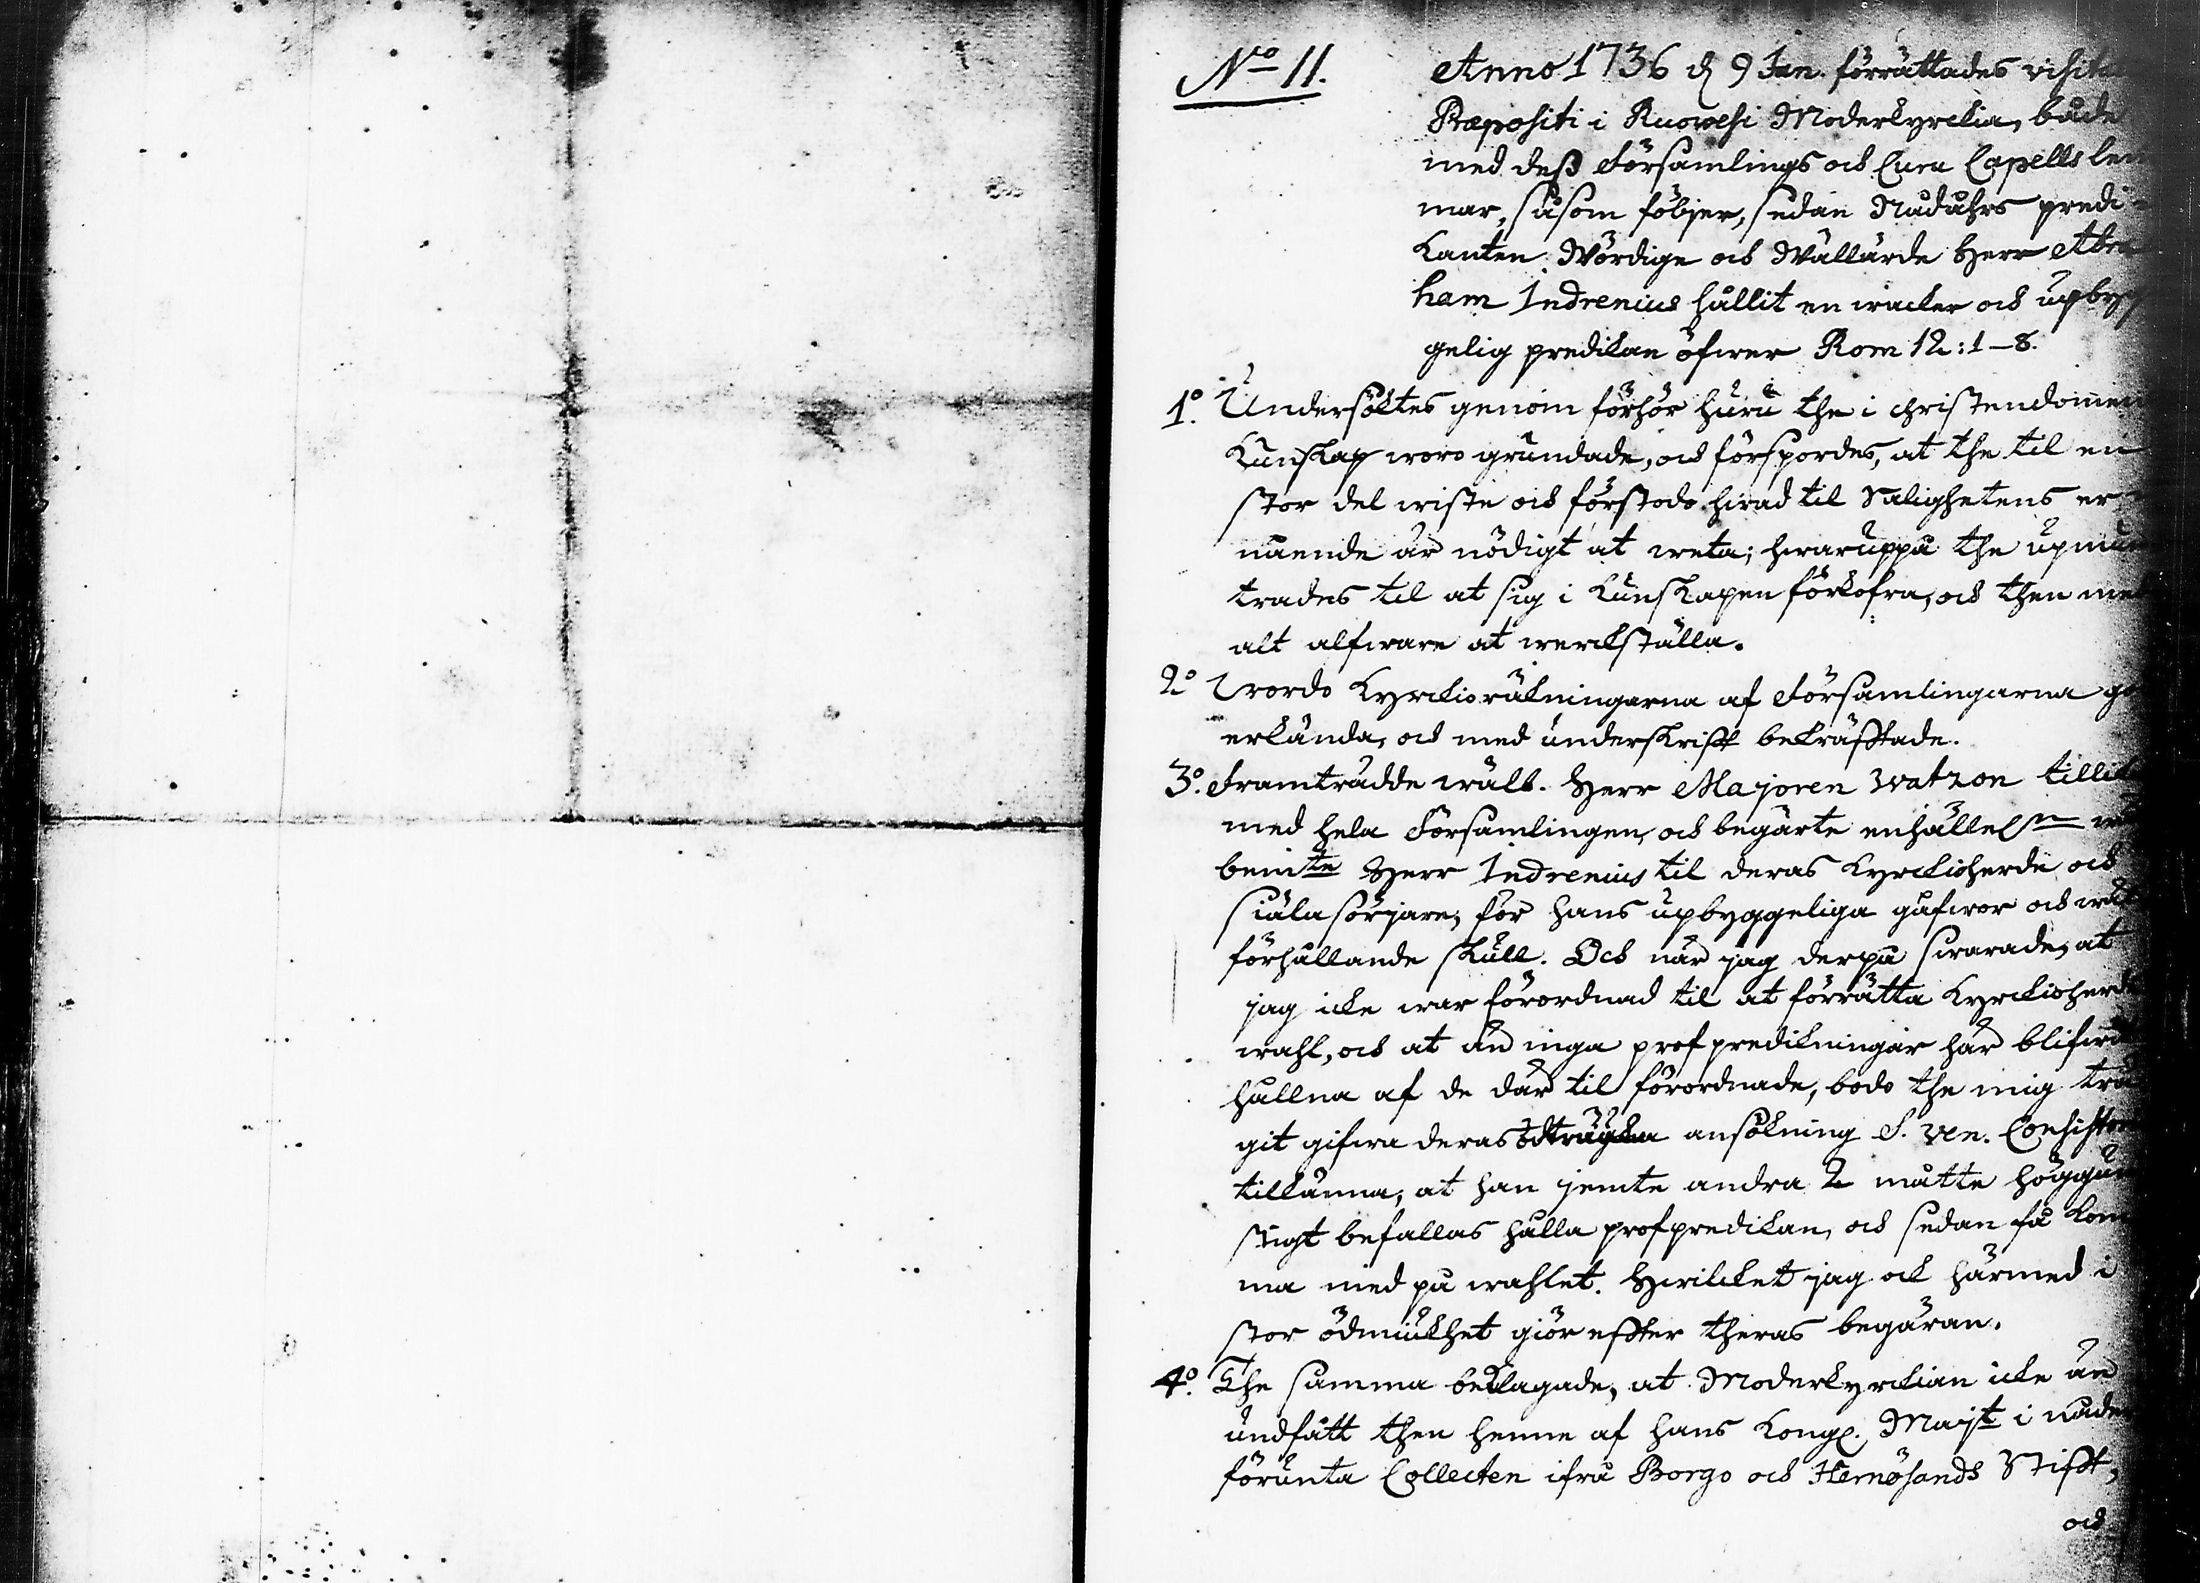 No 11.
Anno 1736 d 9 Jan. förrättades visita
Præpositi i Ruovesi Moderkyrckia, både
med dess Församlings och Curu Capells lem
mar, såsom följer, sedan Nådåhrs predi-
kanten Wördige och Wällärde Herr Abra
ham Indrenius hållit en wacker och upbyg
gelig predikan öfwer Rom 12: 1-8.
1o. Undersöktes genom förhör huru the i christendommen
kunskap woro grundade, och förspordes, at the til en
stor del wiste och förstodo hwad til Salighetens er-
nående är nödigt at weta; hwaruppå the upmun
trades til at sig i kunskapen förkofra, och then med
alt alfware at werckställa.
2o Wordo kyrckioräkningarna af Församlingarna go
erkända, och med underskrifft bekräfftade.
3o. Framträdde wälb. Herr Majoren Watzon tillika
med hela Församlingen, och begärte enhälleln wäl
bemte Herr Indrenius til deras kyrckioherde och
siälasörjare, för hans upbyggeliga gåfwor och wäl
förhållande skull. Och när jag derpå swarade, at
jag icke war förordnad til at förrätta kyrckioherde
wahl, och at än inga profpredikningar här blifwit
hållna af de där til förordnade, bodo the mig trä
git gifwa deras ödträgna ansökning S. Ven. Consisto
tillkänna, at han jemte andra 2 måtte höggun
stigt befallas hålla profpredikan, och sedan få kom
ma med på wahlet. Hwilcket jag ock härmed i
stor ödmiukhet giör effter theras begäran.
4o. The samma beklagade, at Moderkyrckian icke än
undfått then henne af hans Kongl. Majt i nåder
förunta Collecten ifrå Borgo och Hernösands Stifft,
och